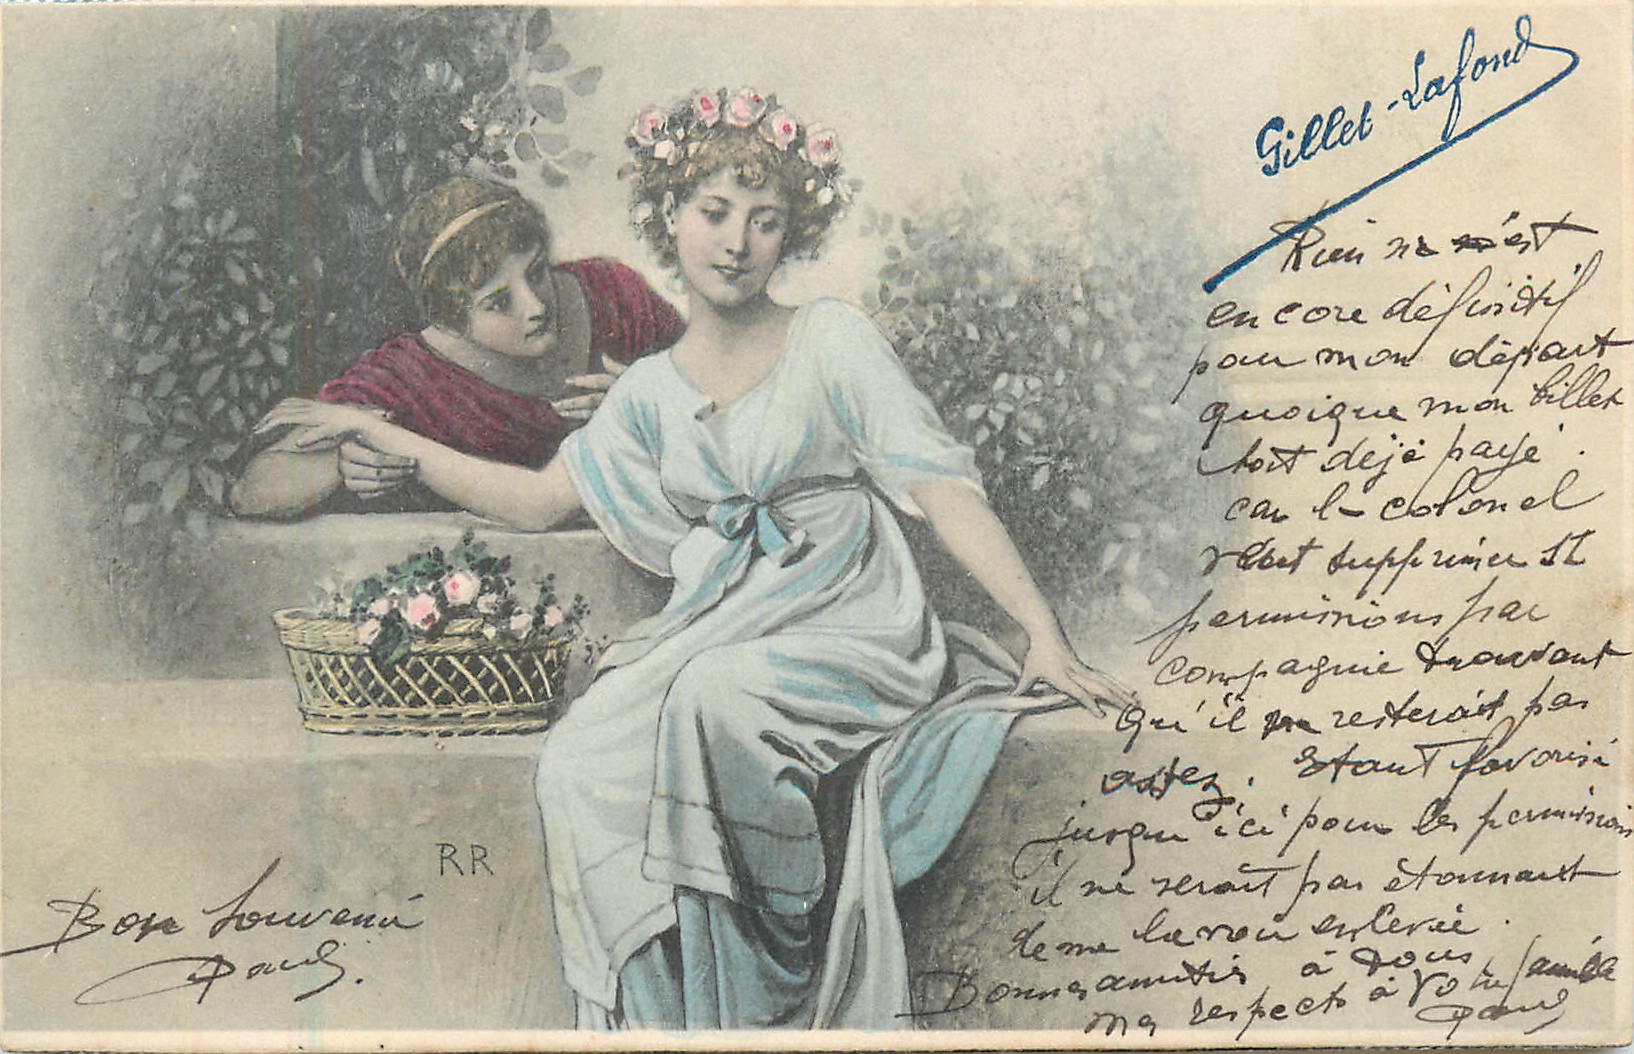 Gillet-Lafond
Rien n'est
encore définitif
pour mon départ
quoique mon billet
soit déjà payé.
car le colonel
veut supprimer St
permissions par
compagnie trouvant
qu'il ne resterait pas
assez. Etant favorisé
jusqu'ici pour les permissions
il ne serait pas étonnant
de me la voir enlevée.
Bonnes amitiés à tous,
mes respects à votre famille
Paul
RR
Bon Souvenir
Paul.